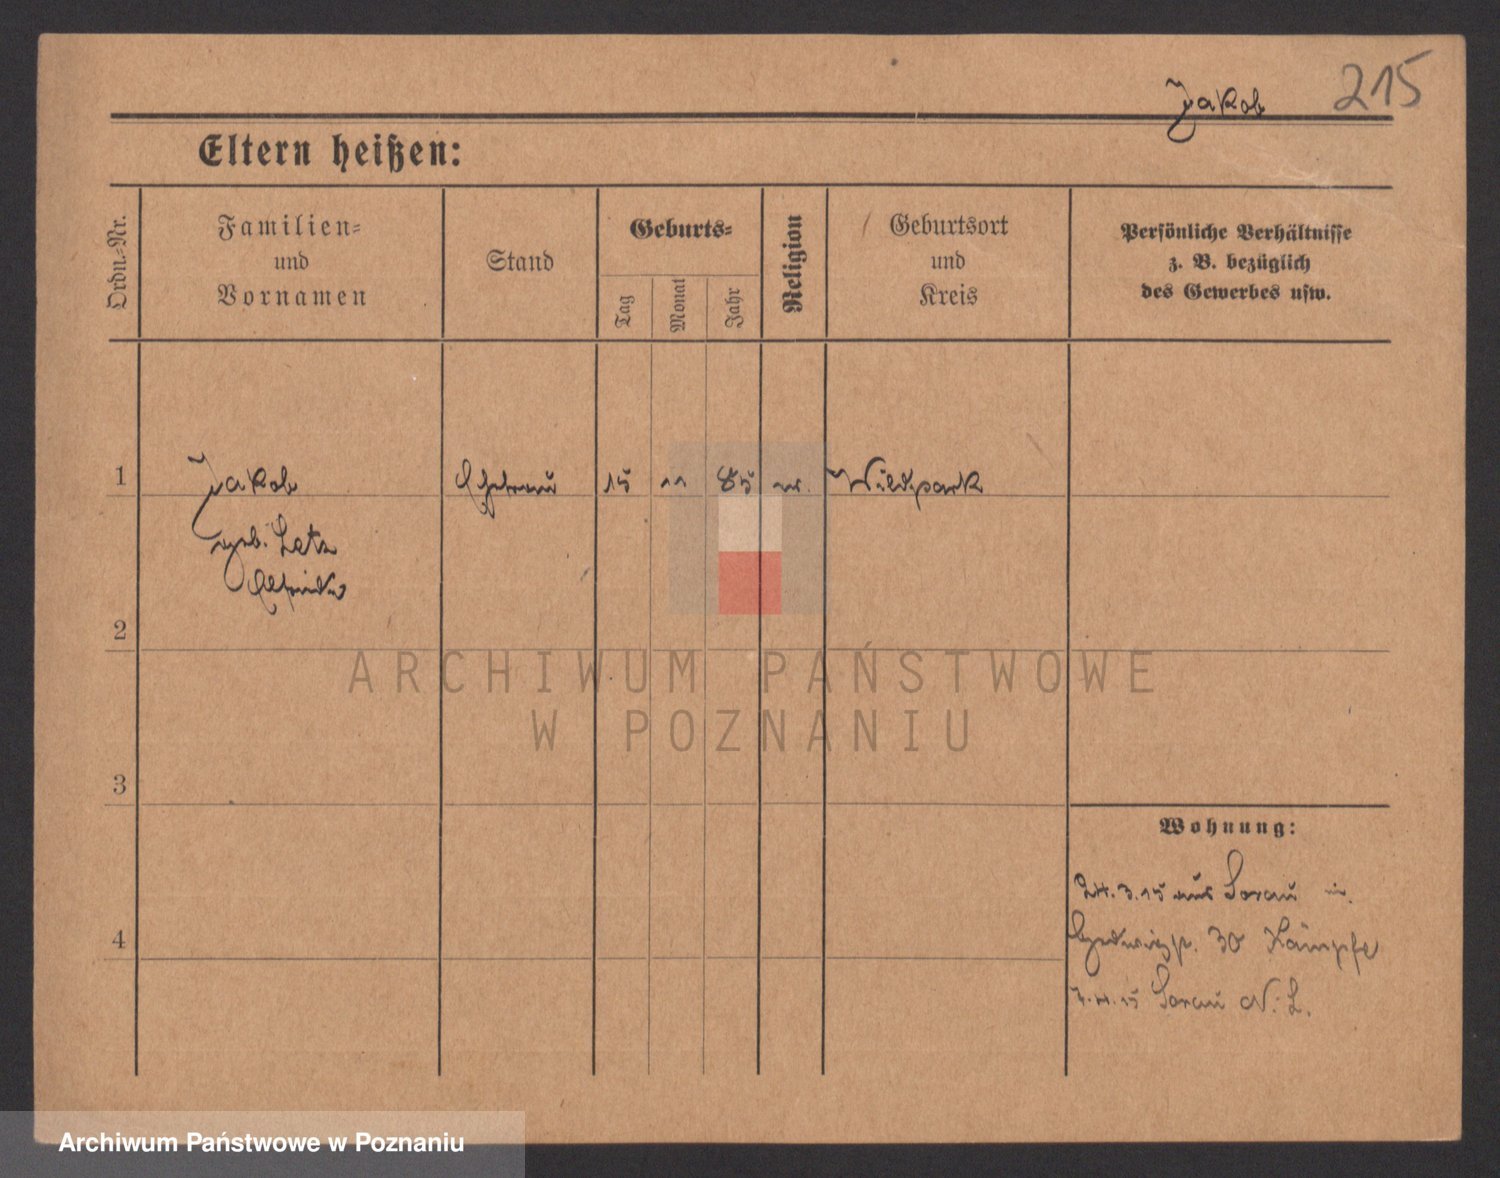 Jakob 215
Eltern heißen:
Ordn.-Nr.
Familien-
und
Vornamen
Stand
Geburts-
Tag
Monat
Jahr
Religion
Geburtsort
und
Kreis
Persönliche Verhältnisse
z. B. bezüglich
des Gewerbes usw.
1 Jakob Ehefrau 15 11 85 Wildpark
geb. Letz
2
3
4
Wohnung:
24.3.15 aus Sorau in
30 Kämpfe
7.4.15 Sorau N. L.
ARCHIWUM PAŃSTWOWE
W POZNANIU
Archiwum Państwowe w Poznaniu